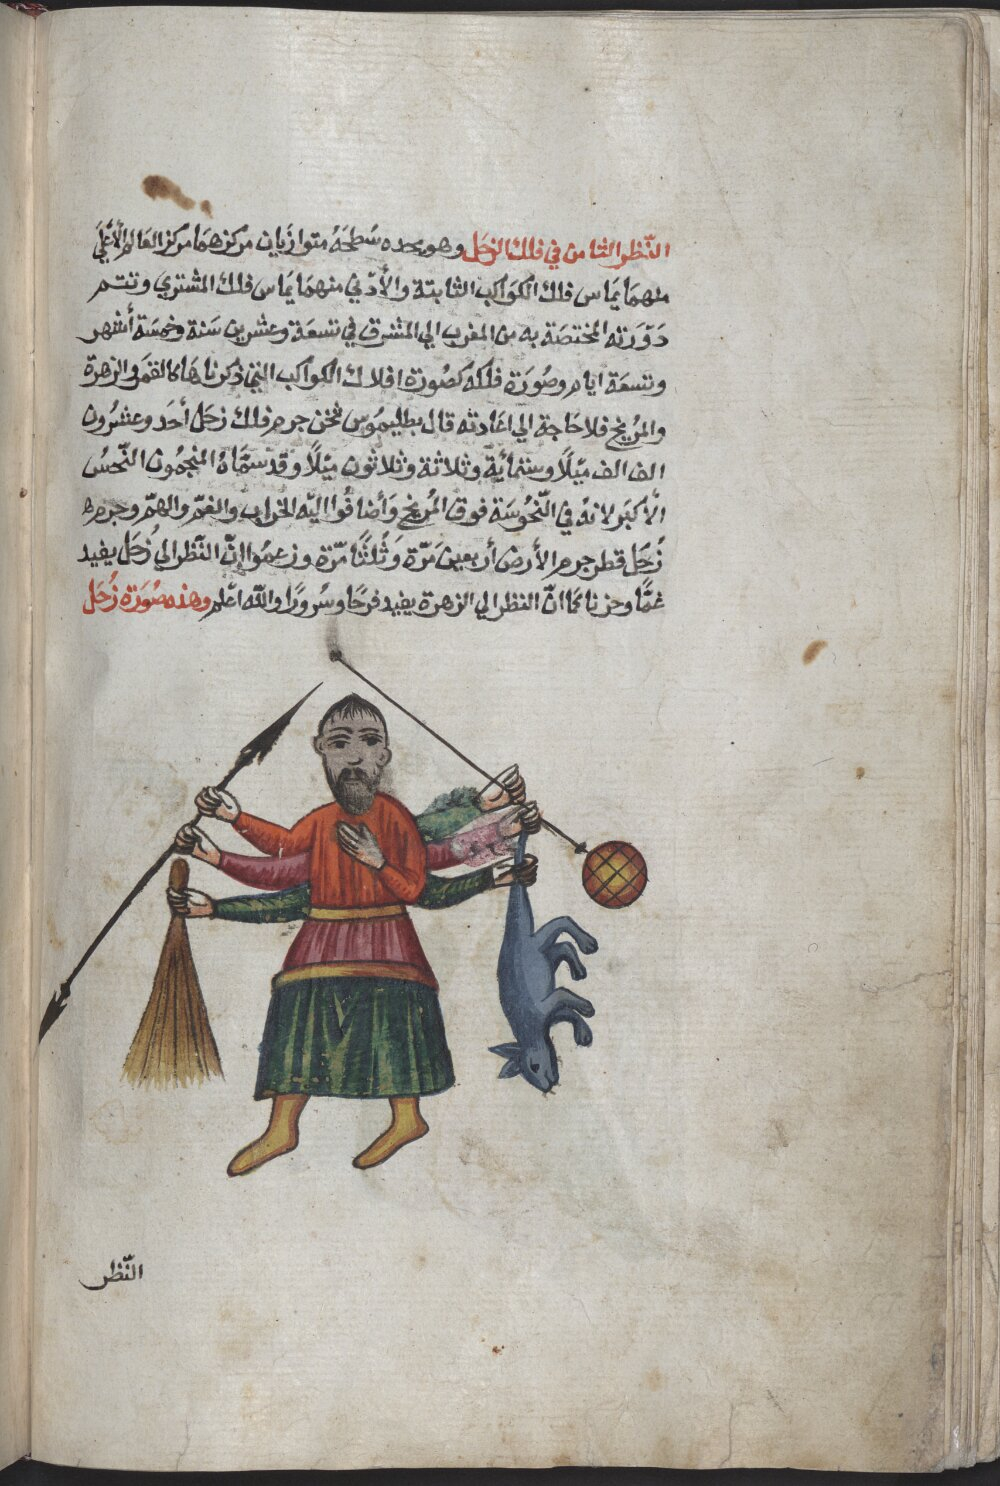 النّظر الثامن في فلك الزحَل وهو يحده سَطحَهُ متوازيان مركزهمَا مركز العَالم الأعْلَي
منهمَا يمَاس فلك الكوَاكب الثابتة والأدني منهمَا يمَاس فلك المشتري وتتم
دَوْرَته المختصَة به من المغرب الي المشرق في تسعَة وعشرين سَنة وخمسَة أشهر
وتسعَة ايام وصُورَة فلكه كصُورة افلاك الكواكب التي ذكرناهَا كالقمَر والزهرة
والمرّيخ فلا حَاجة الي اعَادته قال بطليمُوس ثخن جرم فلك زحَل أحَد وعشرُون
الف الف ميْلًا وستمأية وثلاثة وثلاثون ميْلًا وقد سمَّاهُ المنجّمُون النّحسُ
الأكبَر لانهُ في النّحُوسَة فوق المرّيخ وَأضافُوا اليْه الخراب والغمّ والهمّ وجرم
زُحَل قطر جرم الأرض أربعين مَرّة وَثُلثًا مّرّة وزعمُوا إنّ النّظر الي زُحَل يفيد
غمًّا وحزنا كمَا انّ النظر الي الزهرة يفيد فرحًا وسُرورًا والله اعْلم وهذه صُوَرَة زُحَل
النّظر